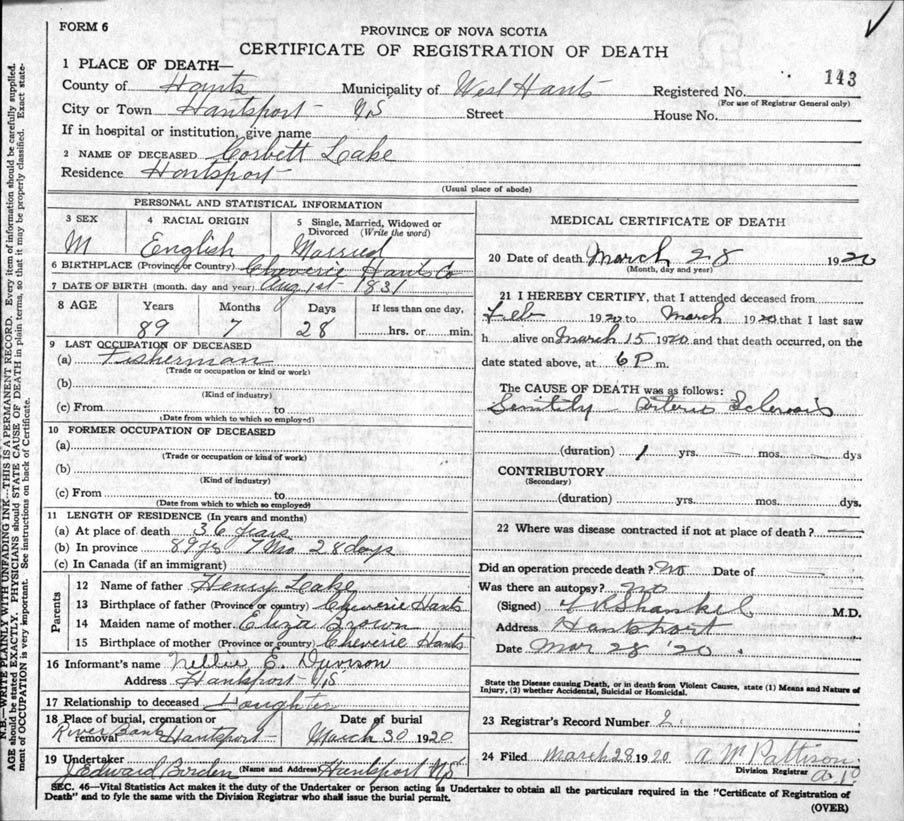 FORM 6
PROVINCE OF NOVA SCOTIA
CERTIFICATE OF REGISTRATION OF DEATH
143
1 PLACE OF DEATH—
County of Hants Municipality of West Hants Registered No.
(For use of Registrar General only)
City or Town Hantsport NS Street House No.
If in hospital or institution, give name
2 NAME OF DECEASED Corbett Lake
Residence Hantsport
(Usual place of abode)
PERSONAL AND STATISTICAL INFORMATION
3 SEX 4 RACIAL ORIGIN 5 Single, Married, Widowed or Divorced (Write the word)
M English Married
6 BIRTHPLACE (Province or Country) Cheverie Hants Co
7 DATE OF BIRTH (month, day and year) Aug 1st 1831
8 AGE Years Months Days If less than one day,
89 7 28 hrs. or min.
9 LAST OCCUPATION OF DECEASED
(a) Fisherman
(Trade or occupation or kind or work)
(b)
(Kind of industry)
(c) From to
(Date from which to which so employed)
10 FORMER OCCUPATION OF DECEASED
(a)
(Trade or occupation or kind of work)
(b)
(Kind of industry)
(c) From to
(Date from which to which so employed)
11 LENGTH OF RESIDENCE (In years and months)
(a) At place of death 36 years
(b) In province 89 ys 7 Mo 28 days
(c) In Canada (if an immigrant)
Parents
12 Name of father Henry Lake
13 Birthplace of father (Province or country) Cheverie Hants
14 Maiden name of mother Eliza Brown
15 Birthplace of mother (Province or Country) Cheverie Hants
16 Informant's name Nellie E. Davison
Address Hantsport NS
17 Relationship to deceased Daughter
18 Place of burial, cremation or removal River Bank Hantsport Date of burial March 30 1920
19 Undertaker J Edward Borden (Name and Address) Hantsport NS
MEDICAL CERTIFICATE OF DEATH
20 Date of death March 28 1920
(Month, day and year)
21 I HEREBY CERTIFY, that I attended deceased from
Feb 1920 to March 1920 that I last saw
h alive on March 15 1920 and that death occurred, on the
date stated above, at 6 P m.
The CAUSE OF DEATH was as follows:
Senility Arterio Sclerosis
(duration) 1 yrs. mos. dys
CONTRIBUTORY
(Secondary)
(duration) yrs. mos. dys.
22 Where was disease contracted if not at place of death?
Did an operation precede death? No Date of
Was there an autopsy? No
(Signed) Shankel M.D.
Address Hantsport
Date Mar 28 '20
State the Disease causing Death, or in death from Violent Causes, state (1) Means and Nature of
Injury, (2) whether Accidental, Suicidal or Homicidal.
23 Registrar's Record Number 2
24 Filed March 28 1920 A M Pattison
Division Registrar
SEC. 46—Vital Statistics Act makes it the duty of the Undertaker or person acting as Undertaker to obtain all the particulars required in the "Certificate of Registration of
Death" and to fyle the same with the Division Registrar who shall issue the burial permit.
(OVER)
N.B.—WRITE PLAINLY WITH UNFADING INK—THIS IS A PERMANENT RECORD. Every item of information should be carefully supplied.
AGE should be stated EXACTLY. PHYSICIANS should STATE CAUSE OF DEATH in plain terms, so that it may be properly classified. Exact state-
ment of OCCUPATION is very important. See instructions on back of Certificate.